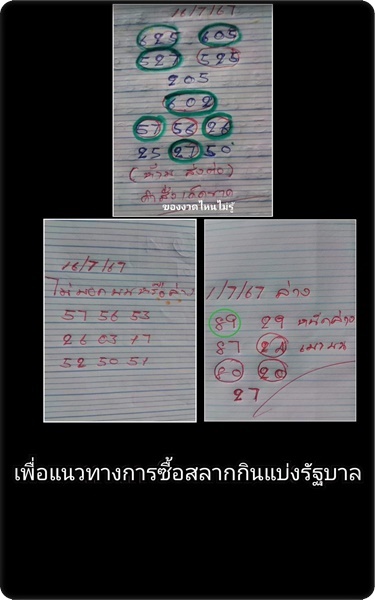 16/7/67
625 605
527 525
205
602
57 56 26
25 27 50
(ห้าม ส่งต่อ)
คำสั่งเด็ดขาด
ของงวดไหนไม่รู้
16/7/67
ไม่บอกบนหรือล่าง
57 56 53
26 03 17
52 50 51
1/7/67 ล่าง
89 29 หนักล่าง
87 21 เมาบน
80 20
27
เพื่อแนวทางการซื้อสลากกินแบ่งรัฐบาล